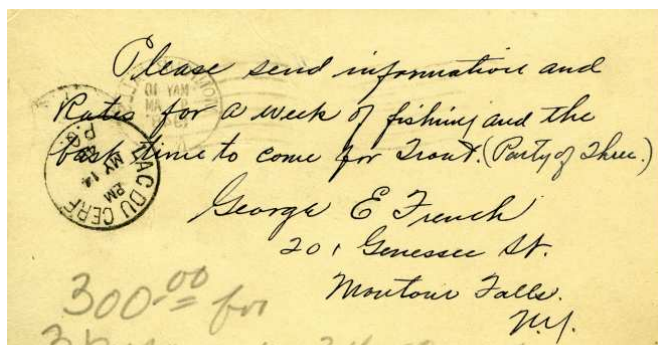 Please send information and
Rates for a week of fishing and the
best time to come for Trout. (Party of Three.)
George E French
201 Genessee St.
Montour Falls.
N.Y.
LAC DU CERF
P.Q.
2 PM
MY 14
MAY 10
300.00 for